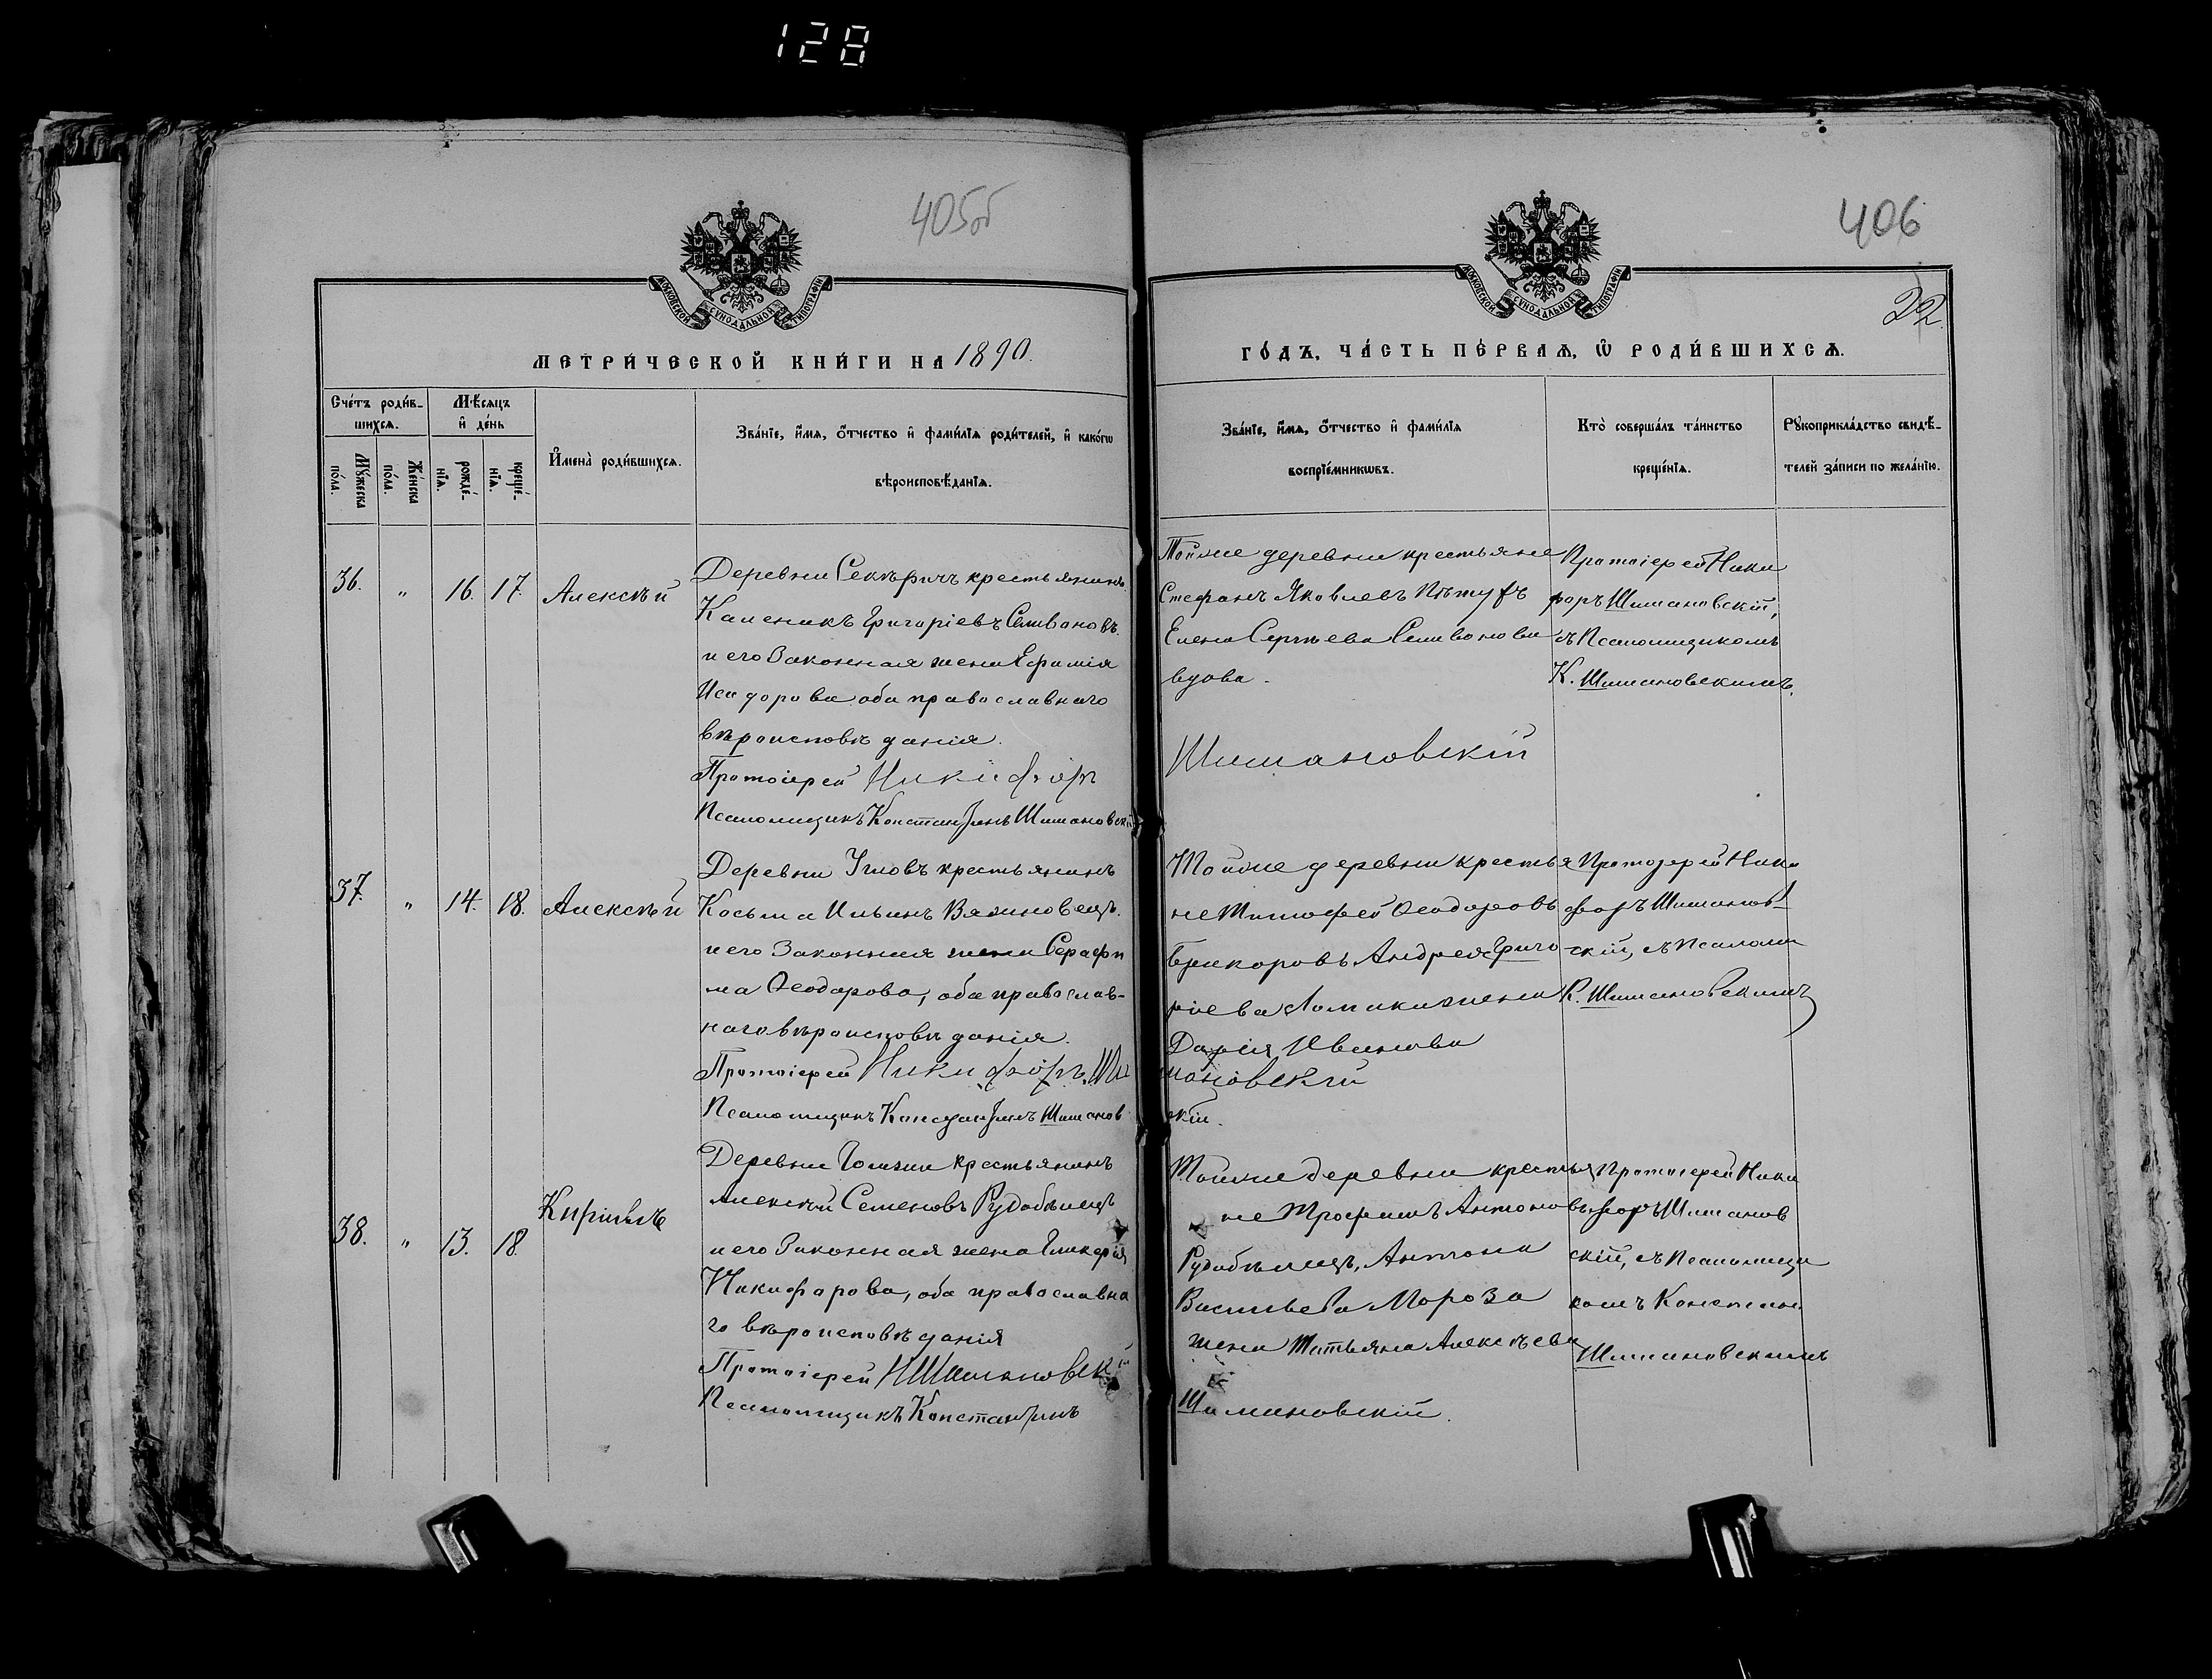 128
405об
406
22.
МОСКОВСКОЙ СѴНОДАЛЬНОЙ ТИПОГРАФІИ
МОСКОВСКОЙ СѴНОДАЛЬНОЙ ТИПОГРАФІИ
МЕТРИ́ЧЕСКОЙ КНИ́ГИ НА 1890.
ГО́ДЪ, ЧА́СТЬ ПЕ́РВАѦ, Ѽ РОДИ́ВШИХСѦ.
Сче́тъ роди́в-
шихсѧ.
Мꙋ́жеска по́ла.
Же́нска по́ла.
Мѣ́сѧцъ
и҆ де́нь
рожде́-
нїѧ.
креще́-
нїѧ.
И҆мена̀ роди́вшихсѧ.
Зва́нїе, и҆́мѧ, ѻ҆́тчество и҆ фами́лїѧ роди́телей, и҆ како́гѡ
вѣроисповѣ́данїѧ.
Зва́нїе, и҆́мѧ, ѻ҆́тчество и҆ фами́лїѧ
воспрїе́мникѡвъ.
Кто̀ соверша́лъ та́инство
креще́нїѧ.
Рꙋкоприкла́дство свидѣ́-
телей за́писи по жела́нїю.
36. " 16. 17. Алексѣй
Деревни Секѣричъ крестьянинъ
Каленикъ Григоріевъ Селивановъ.
и его Законная жена Ефимія
Исидорова, оба православнаго
вѣроисповѣданія.
Протоіерей Никифоръ
Псаломщикъ Константинъ Шимановскій
Тойже деревни крестьяне
Стефанъ Яковлевъ Пѣтухъ
Елена Сергѣева Селиванова
вдова.
Шимановскій
Протоіерей Ники
форъ Шимановскій,
съ Псаломщикомъ
К. Шимановскимъ.
37. " 14. 18. Алексѣй
Деревни крестьянинъ
Косьма Ильинъ Вязиновецъ.
и его Законная жена Серафи
ма Ѳеодорова, оба православ-
наго вѣроисповѣданія.
Протоіерей Никифоръ Ши
Псаломщикъ Константинъ Шиманов
Тойже деревни крестья
не Тимофей Ѳеодоровъ
Андрея Григо
ріева жена
Дарія Иванова
мановскій
скій.
Протоіерей Ники
форъ Шиманов-
скій, съ Псалом
К. Шимановскимъ
38. " 13. 18. Кириллъ
Деревни крестьянинъ
Алексѣй Семеновъ Рудобѣлецъ
и его Законная жена Гликерія
Никифорова, оба православна
го вѣроисповѣданія
Протоіерей Н Шимановскій
Псаломщикъ Константинъ
Тойже деревни крестья
не Трофимъ Антоновъ
Рудобѣлецъ, Антона
Васильева Мороза
жена Татьяна Алексѣева
Шимановскій.
Протоіерей Ники
форъ Шиманов
скій, съ Псаломщи
комъ Констан
Шимановскимъ